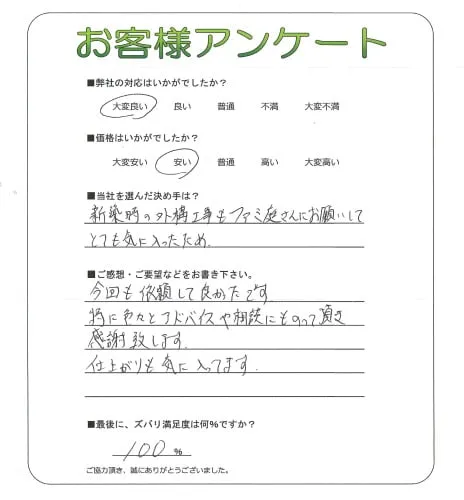 お客様アンケート
■弊社の対応はいかがでしたか？
大変良い 良い 普通 不満 大変不満
■価格はいかがでしたか？
大変安い 安い 普通 高い 大変高い
■当社を選んだ決め手は？
新築時の外構工事もファミ庭さんにお願いして
とても気に入ったため.
■ご感想・ご要望などをお書き下さい。
今回も依頼して良かったです
特に色々とアドバイスや相談にものって頂き
感謝致します.
仕上がりも気に入ってます.
■最後に、ズバリ満足度は何%ですか？
100 %
ご協力頂き、誠にありがとうございました。